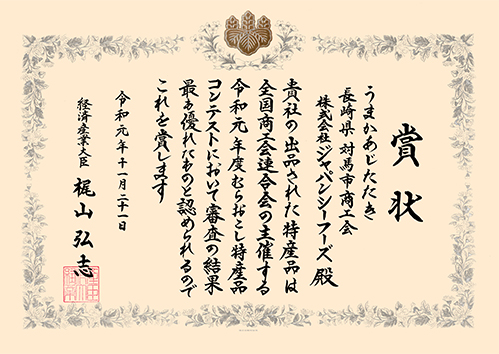 賞状
うまかあじたたき
長崎県 対馬市商工会
株式会社ジャパンシーフーズ 殿
貴社の出品された特産品は
全国商工会連合会の主催する
令和元年度むらおこし特産品
コンテストにおいて審査の結果
最も優れたものと認められるので
これを賞します
令和元年十一月二十一日
経済産業大臣 梶山弘志